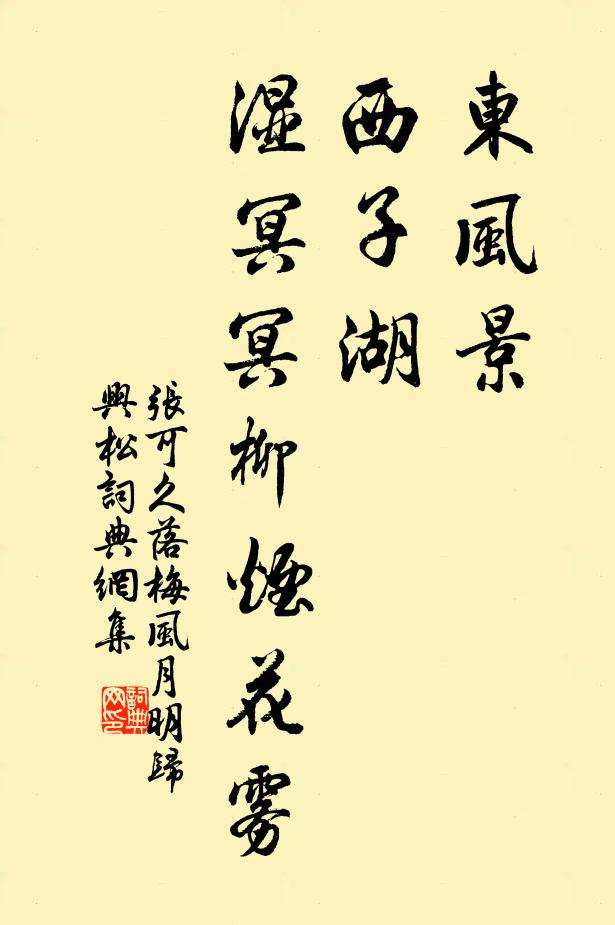 東風景
西子湖
湿冥冥柳煙花雾
張可久落梅風月明歸
興松詞典網集
詞典网印